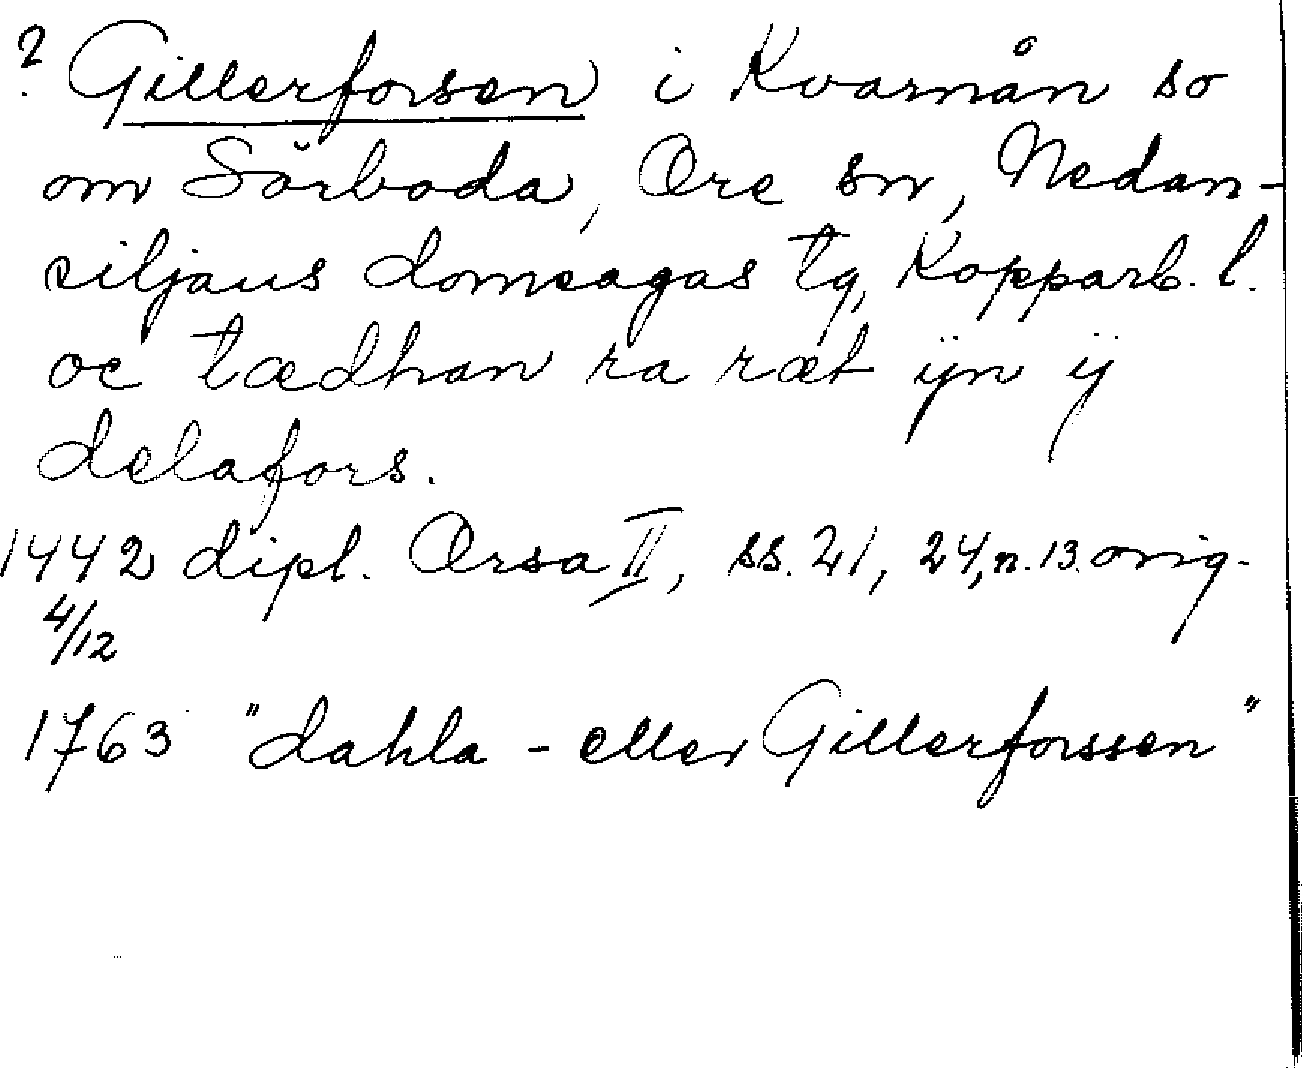 ? Gillerforsen i Kvarnån so
om Sörboda, Ore sn, Nedan-
siljans domsagas tg, Kopparb. l.
oc tædhan ra ræt ijn ij
delafors.
1442 dipl. Orsa II, ss. 21, 24, n. 13. orig.
4/12
1763 "dahla - eller Gillerforssen"